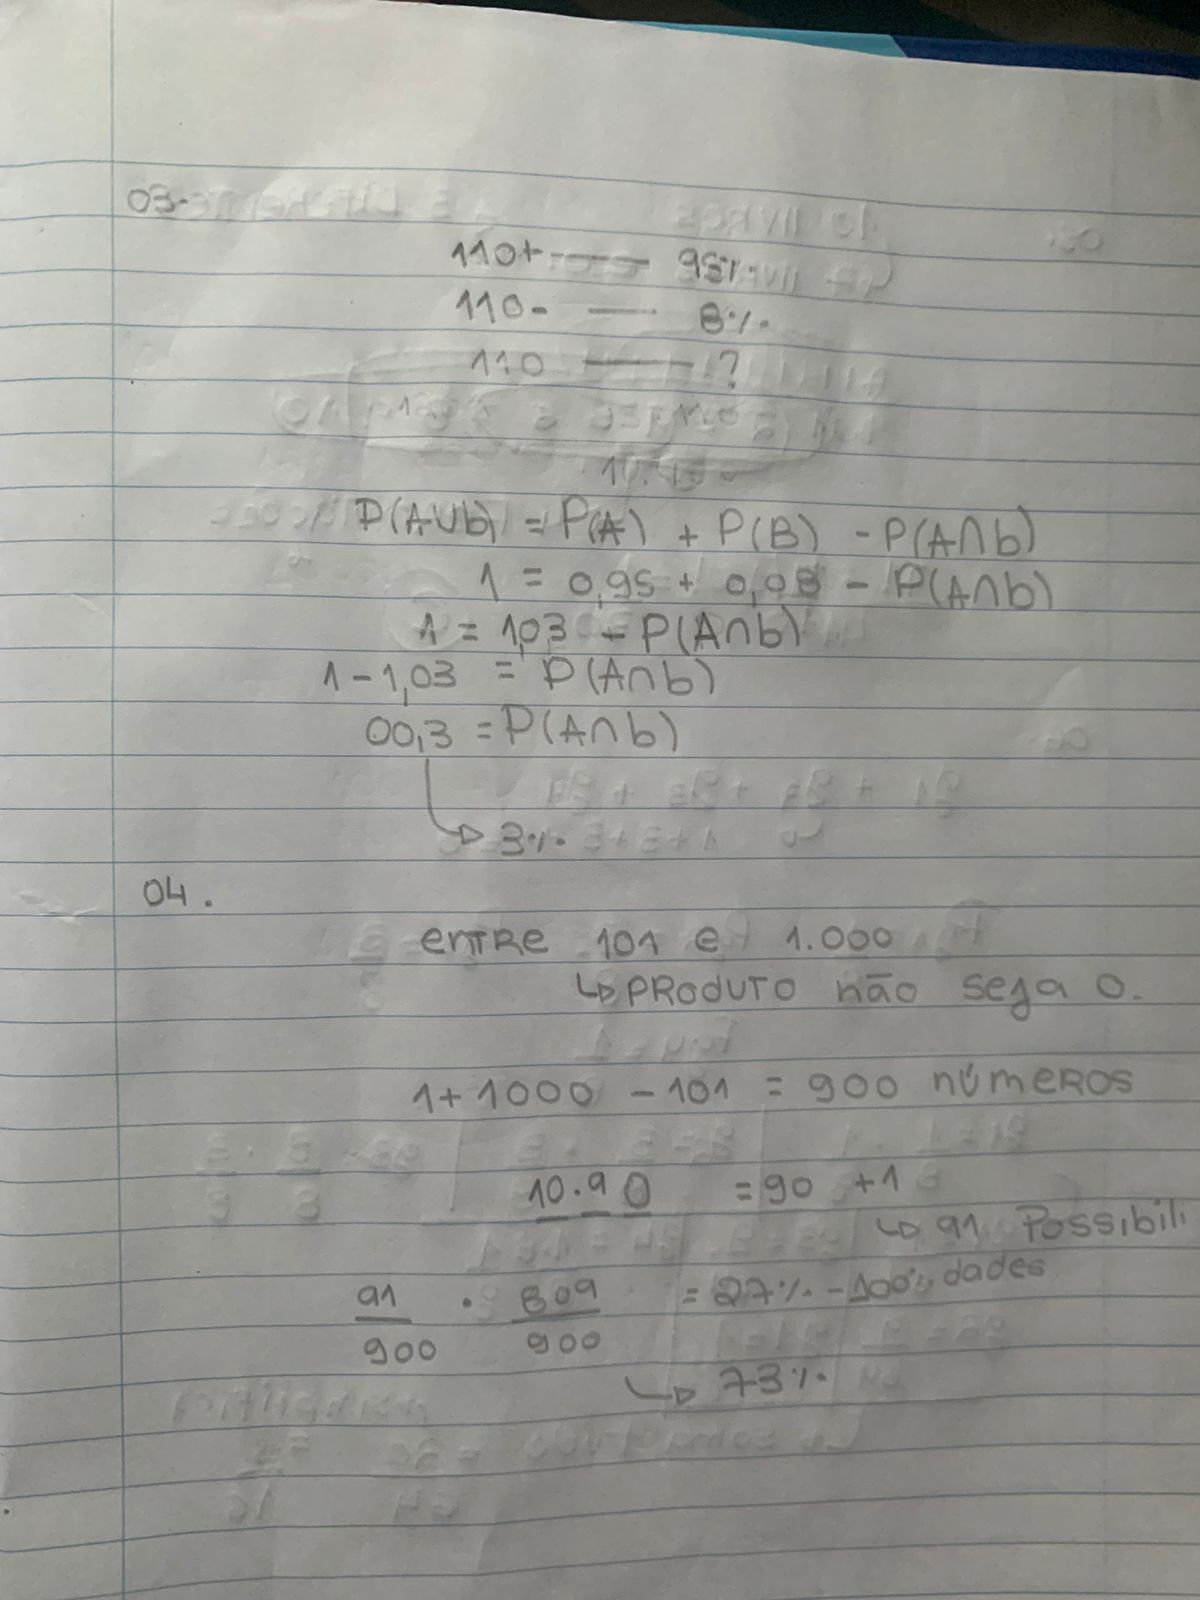 03.
110+ —— 95%
110- —— 8%
110 —— ?
P(AUb) = P(A) + P(B) - P(A∩b)
1 = 0,95 + 0,08 - P(A∩b)
1 = 1,03 - P(A∩b)
1 - 1,03 = P(A∩b)
00,3 = P(A∩b)
↳ 3%
04.
entRe 101 e 1.000
↳ PRODUTO não seja 0.
1 + 1000 - 101 = 900 NÚMEROS
10 . 9 0 = 90 + 1
↳ 91 Possibili
91/900 . 809/900 = 27% - 100% dades
↳ 73%